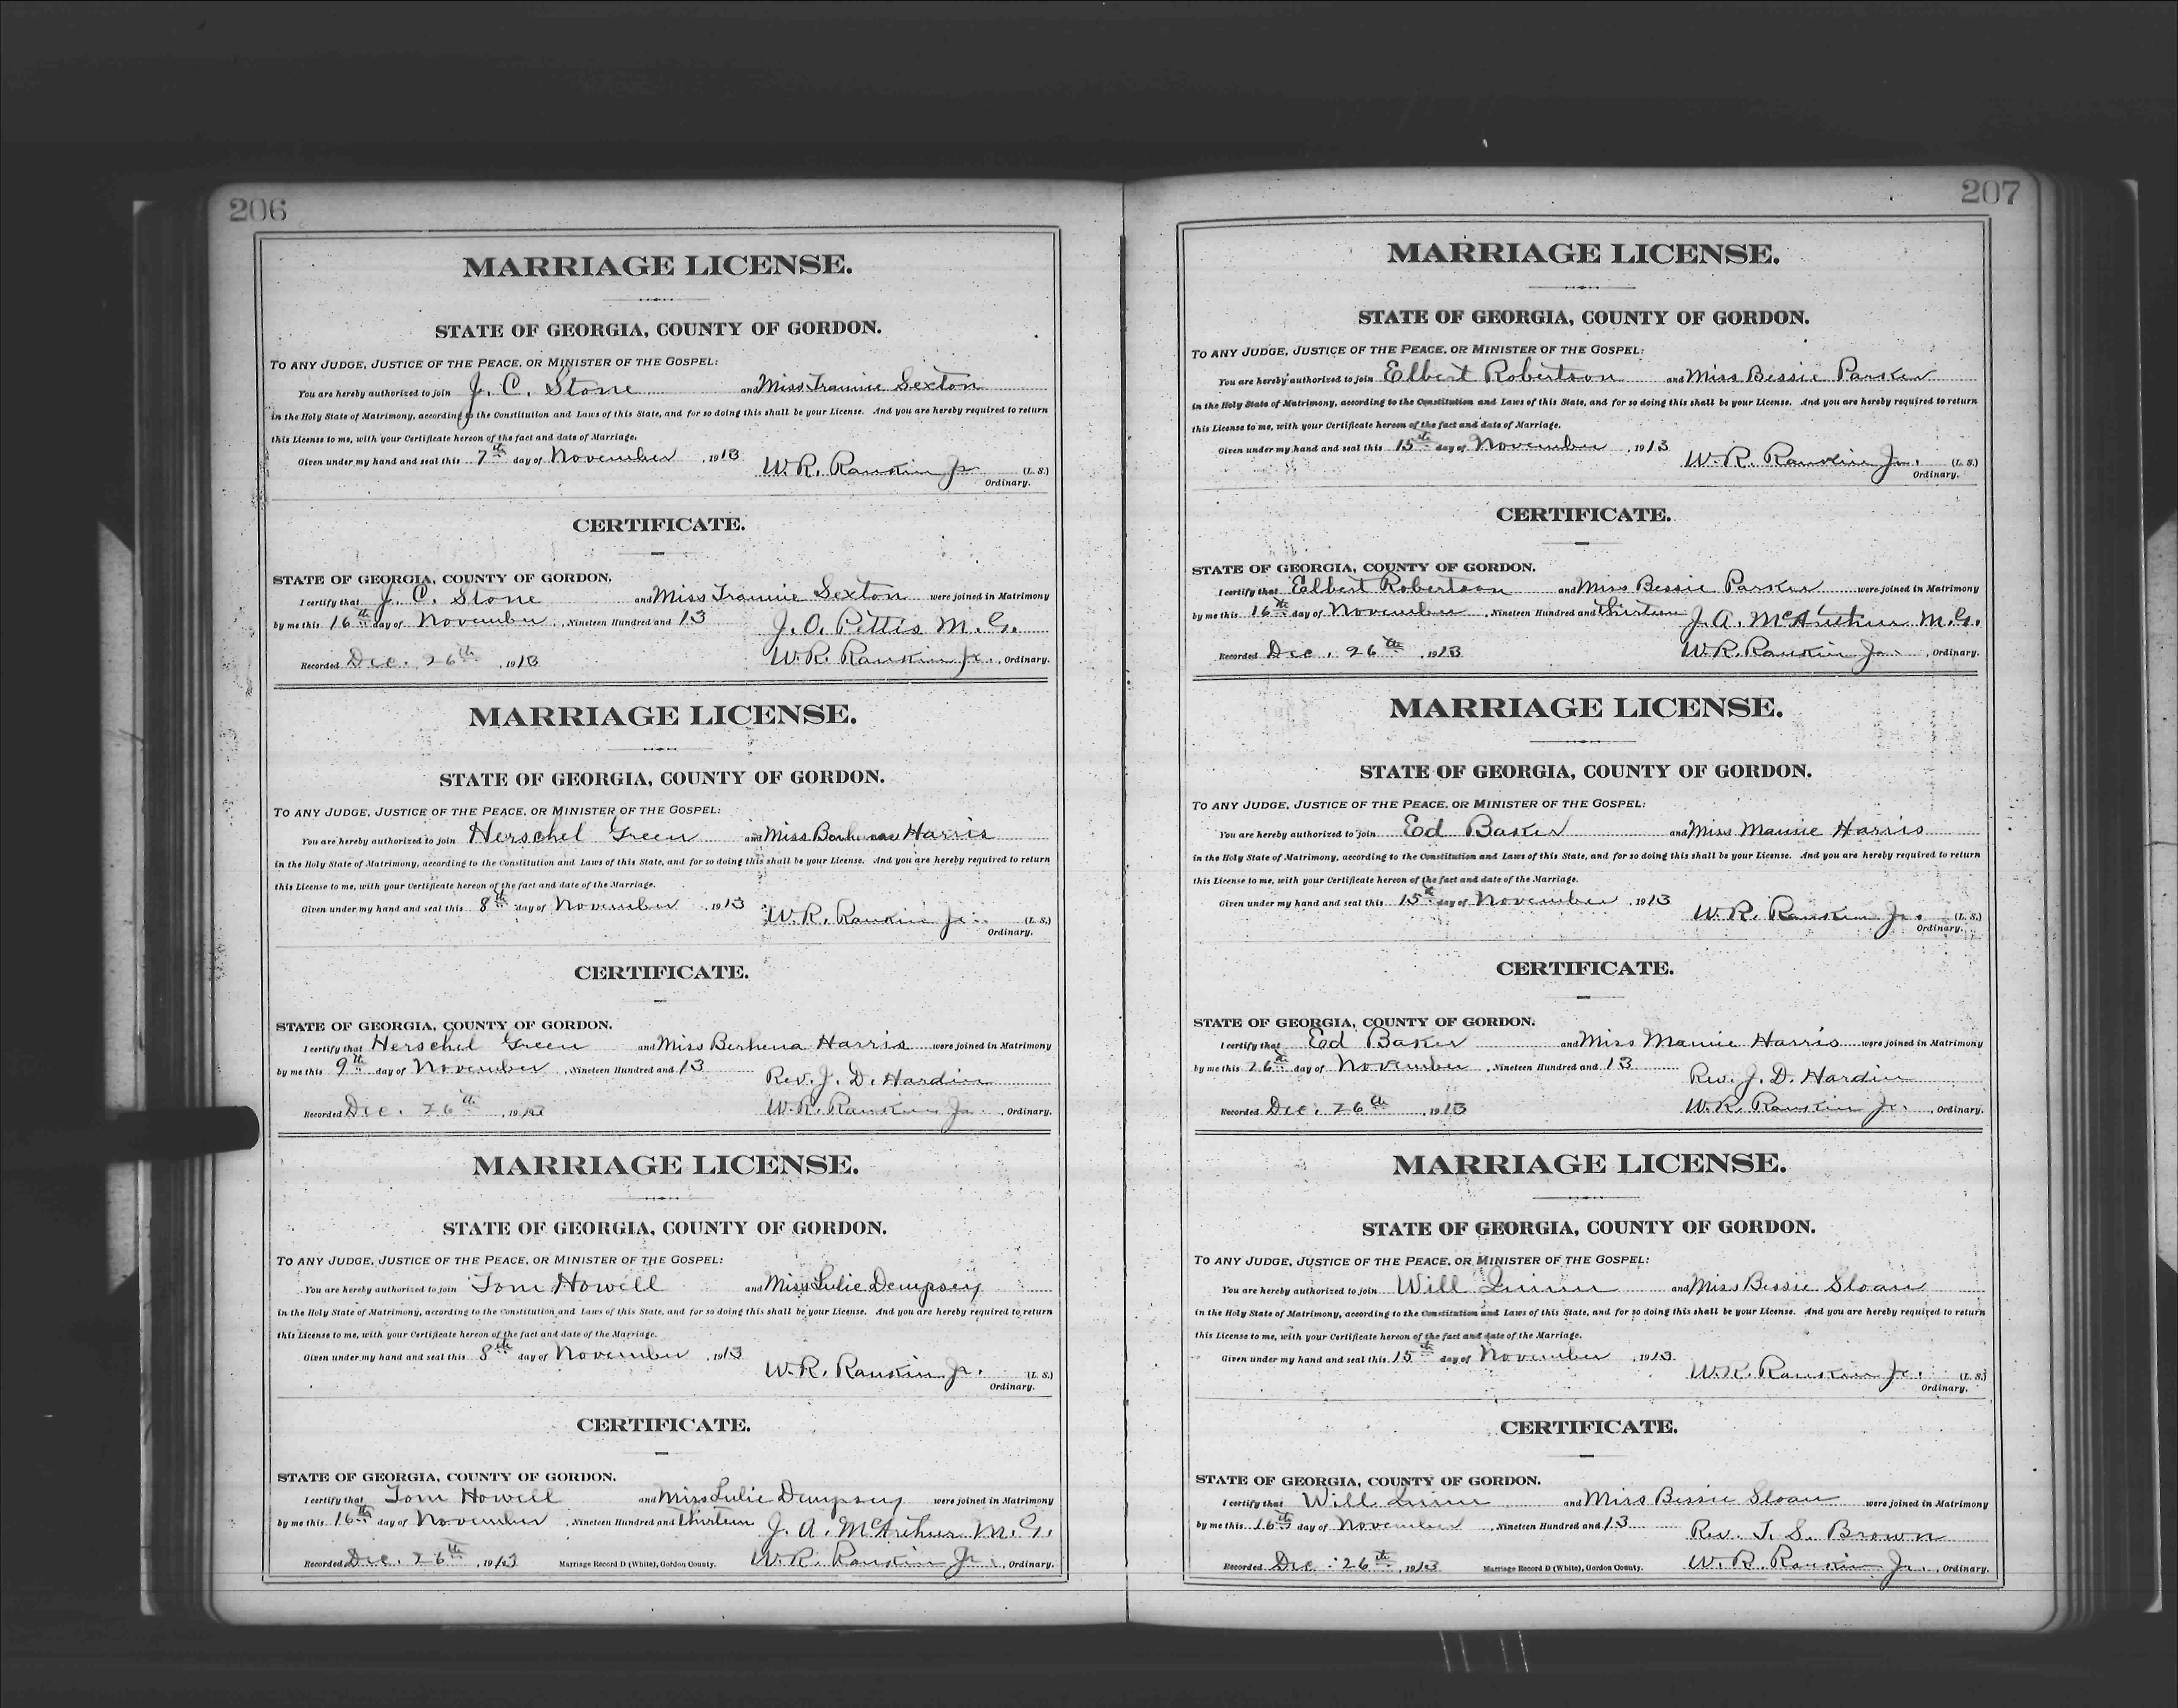 206
MARRIAGE LICENSE.
STATE OF GEORGIA, COUNTY OF GORDON.
TO ANY JUDGE, JUSTICE OF THE PEACE, OR MINISTER OF THE GOSPEL:
You are hereby authorized to join J. C. Stone and Miss Trannie Sexton
in the Holy State of Matrimony, according to the Constitution and Laws of this State, and for so doing this shall be your License. And you are hereby required to return
this License to me, with your Certificate hereon of the fact and date of Marriage.
Given under my hand and seal this 7th day of November, 1913
W. R. Rankin Jr (L. S.)
Ordinary.
CERTIFICATE.
STATE OF GEORGIA, COUNTY OF GORDON.
I certify that J. C. Stone and Miss Trannie Sexton were joined in Matrimony
by me this 16th day of November, Nineteen Hundred and 13 J. O. Pettis M. G.
Recorded Dec. 26th, 1913 W. R. Rankin Jr., Ordinary.
MARRIAGE LICENSE.
STATE OF GEORGIA, COUNTY OF GORDON.
TO ANY JUDGE, JUSTICE OF THE PEACE, OR MINISTER OF THE GOSPEL:
You are hereby authorized to join Herschel Green and Miss Harris
in the Holy State of Matrimony, according to the Constitution and Laws of this State, and for so doing this shall be your License. And you are hereby required to return
this License to me, with your Certificate hereon of the fact and date of the Marriage.
Given under my hand and seal this 8th day of November, 1913
W. R. Rankin Jr. (L. S.)
Ordinary.
CERTIFICATE.
STATE OF GEORGIA, COUNTY OF GORDON.
I certify that Herschel Green and Miss Berhena Harris were joined in Matrimony
by me this 9th day of November, Nineteen Hundred and 13 Rev. J. D. Hardin
Recorded Dec. 26th, 1913 W. R. Rankin Jr., Ordinary.
MARRIAGE LICENSE.
STATE OF GEORGIA, COUNTY OF GORDON.
TO ANY JUDGE, JUSTICE OF THE PEACE, OR MINISTER OF THE GOSPEL:
You are hereby authorized to join Tom Howell and Miss Lulie Dempsey
in the Holy State of Matrimony, according to the Constitution and Laws of this State, and for so doing this shall be your License. And you are hereby required to return
this License to me, with your Certificate hereon of the fact and date of the Marriage.
Given under my hand and seal this 8th day of November, 1913
W. R. Rankin Jr. (L. S.)
Ordinary.
CERTIFICATE.
STATE OF GEORGIA, COUNTY OF GORDON.
I certify that Tom Howell and Miss Lulie Dempsey were joined in Matrimony
by me this 16th day of November, Nineteen Hundred and thirteen J. A. McArthur M. G.
Recorded Dec. 26th, 1913 Marriage Record D (White), Gordon County. W. R. Rankin Jr., Ordinary.
207
MARRIAGE LICENSE.
STATE OF GEORGIA, COUNTY OF GORDON.
TO ANY JUDGE, JUSTICE OF THE PEACE, OR MINISTER OF THE GOSPEL:
You are hereby authorized to join Elbert Robertson and Miss Bessie Parker
in the Holy State of Matrimony, according to the Constitution and Laws of this State, and for so doing this shall be your License. And you are hereby required to return
this License to me, with your Certificate hereon of the fact and date of Marriage.
Given under my hand and seal this 15th day of November, 1913
W. R. Rankin Jr. (L. S.)
Ordinary.
CERTIFICATE.
STATE OF GEORGIA, COUNTY OF GORDON.
I certify that Elbert Robertson and Miss Bessie Parker were joined in Matrimony
by me this 16th day of November, Nineteen Hundred and thirteen J. A. McArthur M. G.
Recorded Dec. 26th, 1913 W. R. Rankin Jr., Ordinary.
MARRIAGE LICENSE.
STATE OF GEORGIA, COUNTY OF GORDON.
TO ANY JUDGE, JUSTICE OF THE PEACE, OR MINISTER OF THE GOSPEL:
You are hereby authorized to join Ed Baker and Miss Mamie Harris
in the Holy State of Matrimony, according to the Constitution and Laws of this State, and for so doing this shall be your License. And you are hereby required to return
this License to me, with your Certificate hereon of the fact and date of the Marriage.
Given under my hand and seal this 15th day of November, 1913
W. R. Rankin Jr. (L. S.)
Ordinary.
CERTIFICATE.
STATE OF GEORGIA, COUNTY OF GORDON.
I certify that Ed Baker and Miss Mamie Harris were joined in Matrimony
by me this 26th day of November, Nineteen Hundred and 13 Rev. J. D. Hardin
Recorded Dec. 26th, 1913 W. R. Rankin Jr., Ordinary.
MARRIAGE LICENSE.
STATE OF GEORGIA, COUNTY OF GORDON.
TO ANY JUDGE, JUSTICE OF THE PEACE, OR MINISTER OF THE GOSPEL:
You are hereby authorized to join Will and Miss Bessie Sloan
in the Holy State of Matrimony, according to the Constitution and Laws of this State, and for so doing this shall be your License. And you are hereby required to return
this License to me, with your Certificate hereon of the fact and date of the Marriage.
Given under my hand and seal this 15th day of November, 1913
W. R. Rankin Jr. (L. S.)
Ordinary.
CERTIFICATE.
STATE OF GEORGIA, COUNTY OF GORDON.
I certify that Will and Miss Bessie Sloan were joined in Matrimony
by me this 16th day of November, Nineteen Hundred and 13 Rev. T. S. Brown
Recorded Dec. 26th, 1913 Marriage Record D (White), Gordon County. W. R. Rankin Jr., Ordinary.